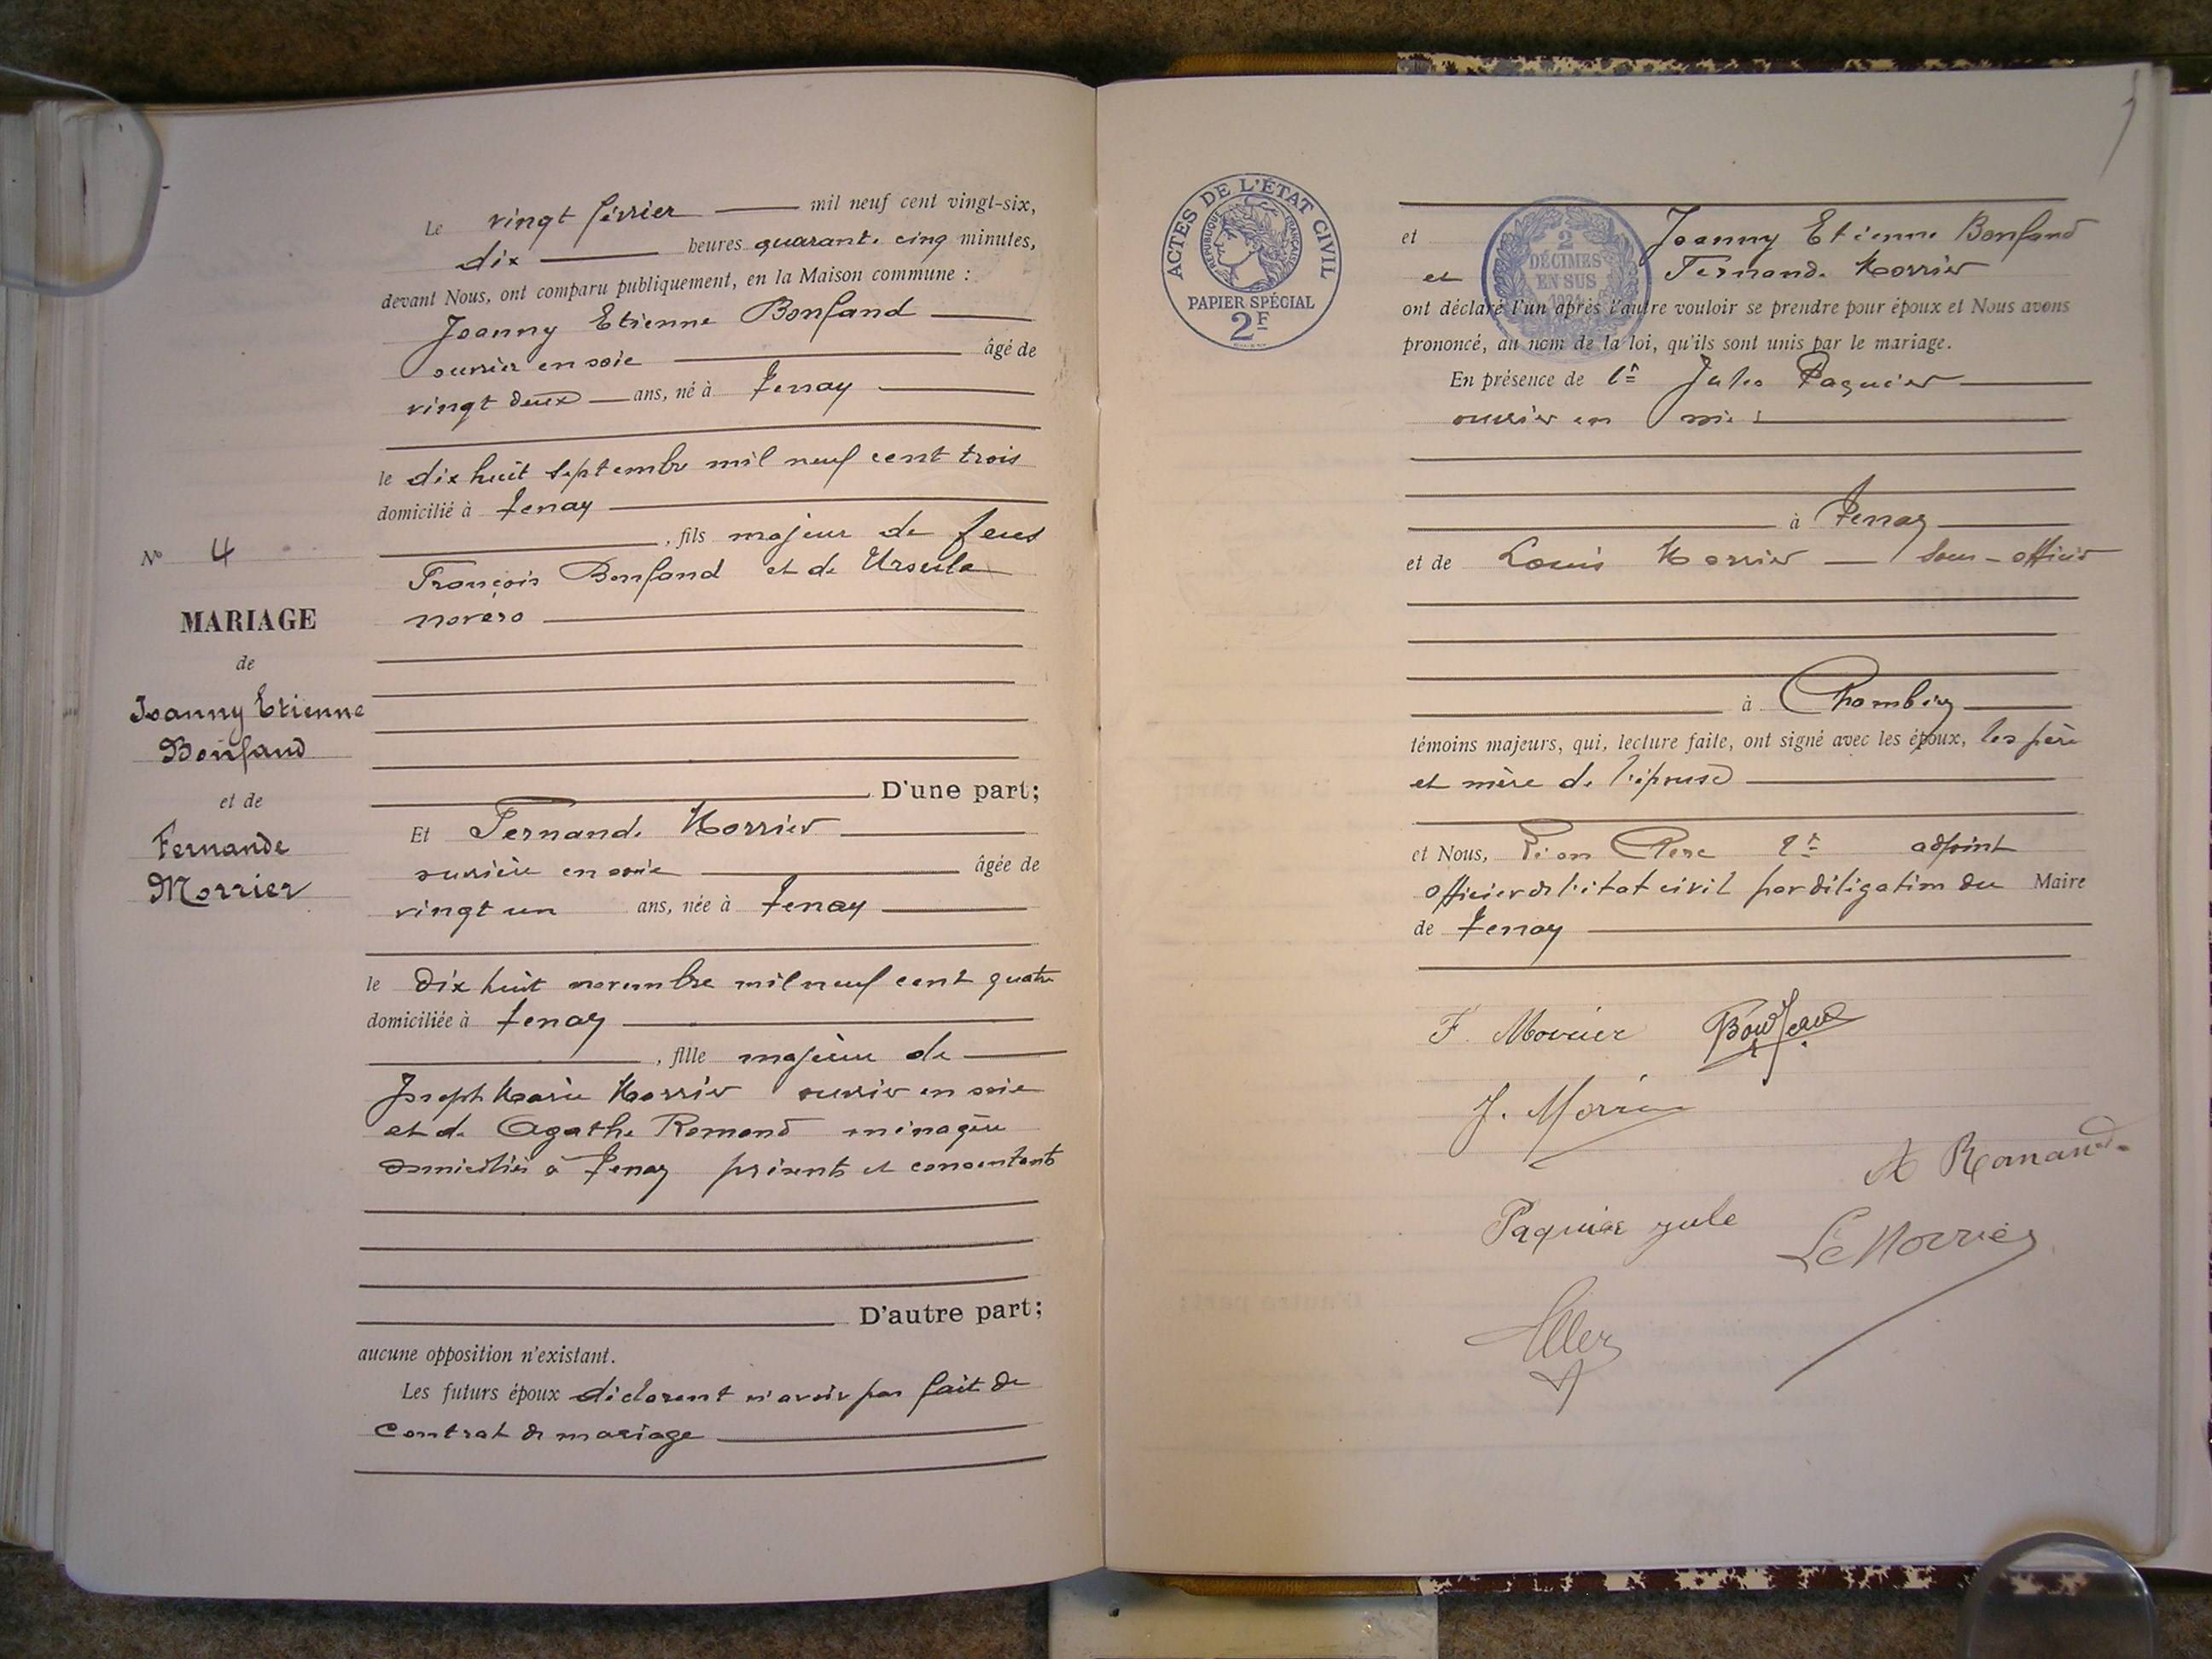 Le vingt février mil neuf cent vingt-six,
dix heures quarante cinq minutes,
devant Nous, ont comparu publiquement, en la Maison commune :
Joanny Etienne Bonfand
ouvrier en soie âgé de
vingt deux ans, né à Tenay
le dix huit septembre mil neuf cent trois
domicilié à Tenay
, fils majeur de feus
François Bonfand et de Ursule
novéro
D'une part;
Et Fernande Morrier
ouvrière en soie âgée de
vingt un ans, née à Tenay
le dix huit novembre mil neuf cent quatre
domiciliée à Tenay
, fille majeure de
Joseph Marie Morrier ouvrier en soie
et de Agathe Romand ménagère
domiciliés à Tenay présents et consentants
D'autre part;
aucune opposition n'existant.
Les futurs époux déclarent n'avoir pas fait de
contrat de mariage
No 4
MARIAGE
de
Joanny Etienne
Bonfand
et de
Fernande
Morrier
ACTES DE L'ÉTAT CIVIL
RÉPUBLIQUE FRANÇAISE
PAPIER SPÉCIAL
2F
2
DÉCIMES
EN SUS
et Joanny Etienne Bonfand
et Fernande Morrier
ont déclaré l'un après l'autre vouloir se prendre pour époux et Nous avons
prononcé, au nom de la loi, qu'ils sont unis par le mariage.
En présence de Jules Paquier
ouvrier en soie
à Tenay
et de Louis Morrier sous-officier
à Chambéry
témoins majeurs, qui, lecture faite, ont signé avec les époux, les père
et mère de l'épouse
et Nous, Léon adjoint
officier de l'état civil par délégation du Maire
de Tenay
F. Morrier Bonfand
J. Morrier
A Romand
Paquier jule
Le Morrier